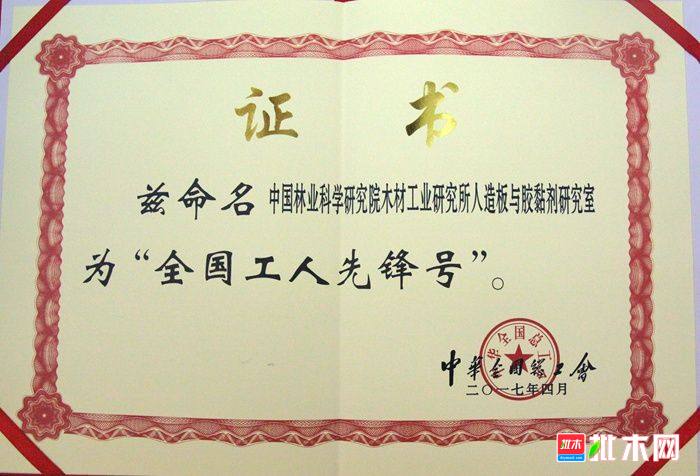 证书
兹命名中国林业科学研究院木材工业研究所人造板与胶黏剂研究室
为“全国工人先锋号”。
中华全国总工会
中華全國總工會
二〇一七年四月
批木 批木网